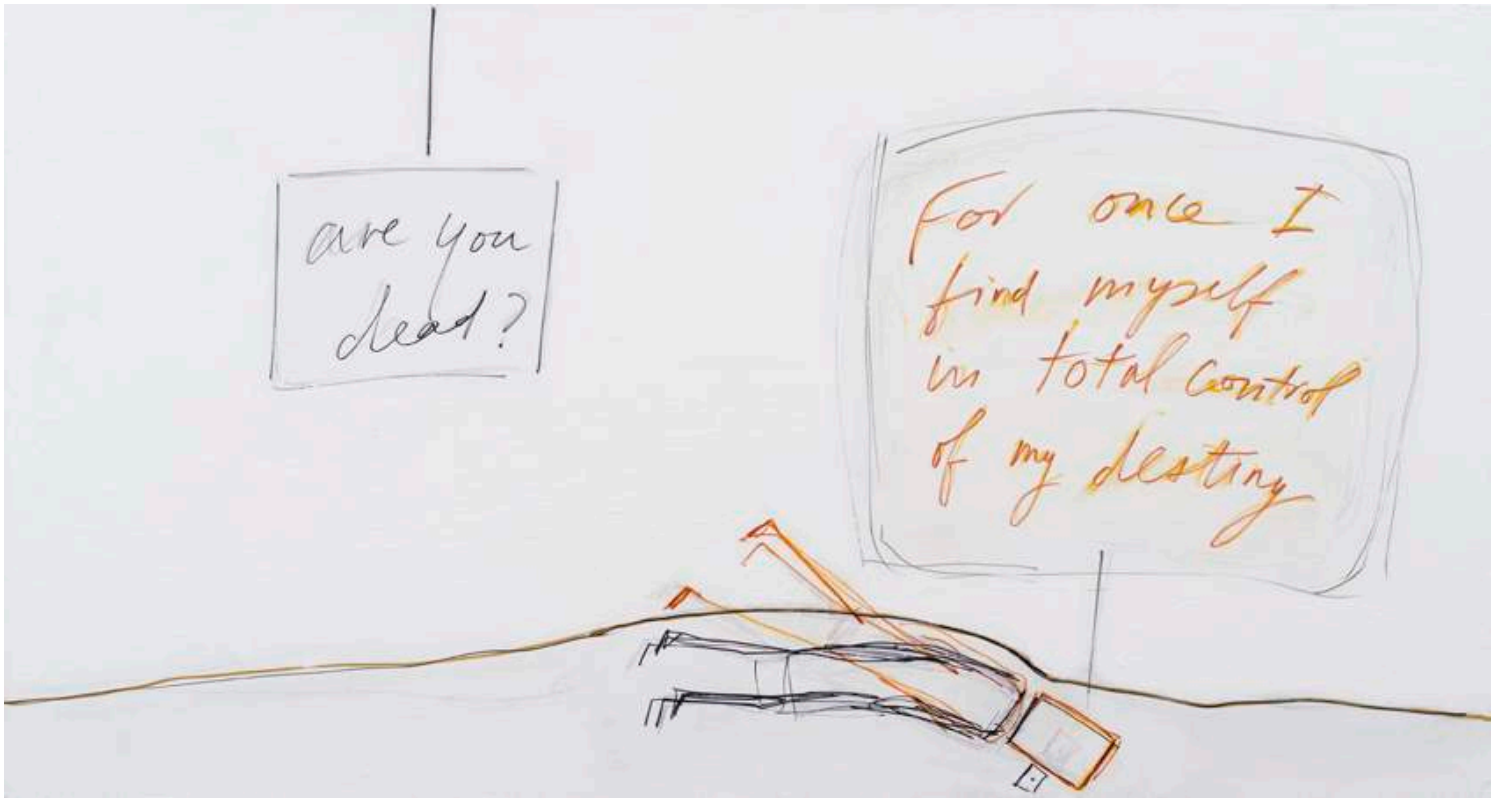 are you
dead?
For once I
find myself
in total control
of my destiny